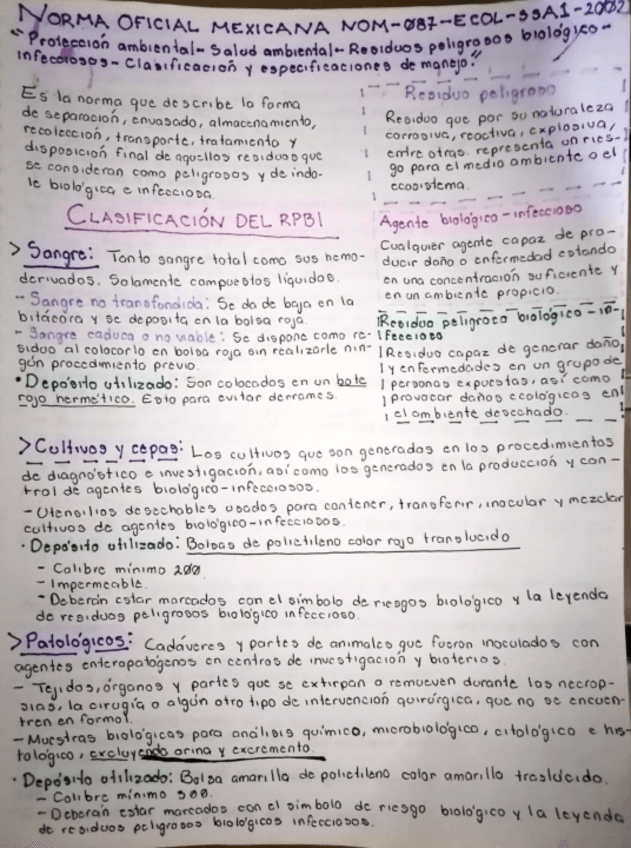 NORMA OFICIAL MEXICANA NOM-087-ECOL-SSA1-2002
"Protección ambiental- Salud ambiental- Residuos peligrosos biológico-
infecciosos- Clasificación y especificaciones de manejo."
Es la norma que describe la forma
de separación, envasado, almacenamiento,
recolección, transporte, tratamiento y
disposición final de aquellos residuos que
se consideran como peligrosos y de índo-
le biológica e infecciosa.
Residuo peligroso
Residuo que por su naturaleza
corrosiva, reactiva, explosiva,
entre otras. representa un ries-
go para el medio ambiente o el
ecosistema.
CLASIFICACIÓN DEL RPBI
> Sangre: Tanto sangre total como sus hemo-
derivados. Solamente compuestos líquidos.
- Sangre no transfondida: Se da de baja en la
bitácora y se deposita en la bolsa roja.
- Sangre caduca o no viable: Se dispone como re-
siduo al colocarlo en bolsa roja sin realizarle nin-
gún procedimiento previo.
• Depósito utilizado: Son colocados en un bote
rojo hermético. Esto para evitar derrames.
Agente biológico-infeccioso
Cualquier agente capaz de pro-
ducir daño o enfermedad estando
en una concentración suficiente y
en un ambiente propicio.
Residuo peligroso biológico-in-
feccioso
Residuo capaz de generar daño,
y enfermedades en un grupo de
personas expuestas, así como
provocar daños ecológicos en
el ambiente desechado.
> Cultivos y cepas: Los cultivos que son generados en los procedimientos
de diagnóstico e investigación, así como los generados en la producción y con-
trol de agentes biológico-infecciosos.
- Utensilios desechables usados para contener, transferir, inocular y mezclar
cultivos de agentes biológico-infecciosos.
• Depósito utilizado: Bolsas de polietileno color rojo translucido
- Calibre mínimo 200
- Impermeable.
- Deberán estar marcados con el símbolo de riesgos biológico y la leyenda
de residuos peligrosos biológico infeccioso.
> Patológicos: Cadáveres y partes de animales que fueron inoculados con
agentes enteropatógenos en centros de investigación y bioterios.
- Tejidos, órganos y partes que se extirpan o remueven durante las necrop-
sias, la cirugía o algún otro tipo de intervención quirúrgica, que no se encuen-
tren en formol.
- Muestras biológicas para análisis químico, microbiológico, citológico e his-
tológico, excluyendo orina y excremento.
• Depósito utilizado: Bolsa amarilla de polietileno color amarillo traslúcido.
- Calibre mínimo 300.
- Deberán estar marcados con el símbolo de riesgo biológico y la leyenda
de residuos peligrosos biológicos infecciosos.